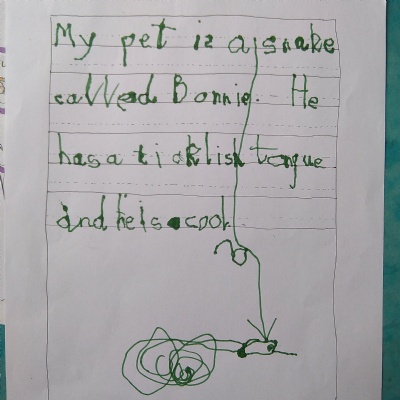 My pet is a snake
called Bonnie. He
has a ticklish tongue
and he is cool